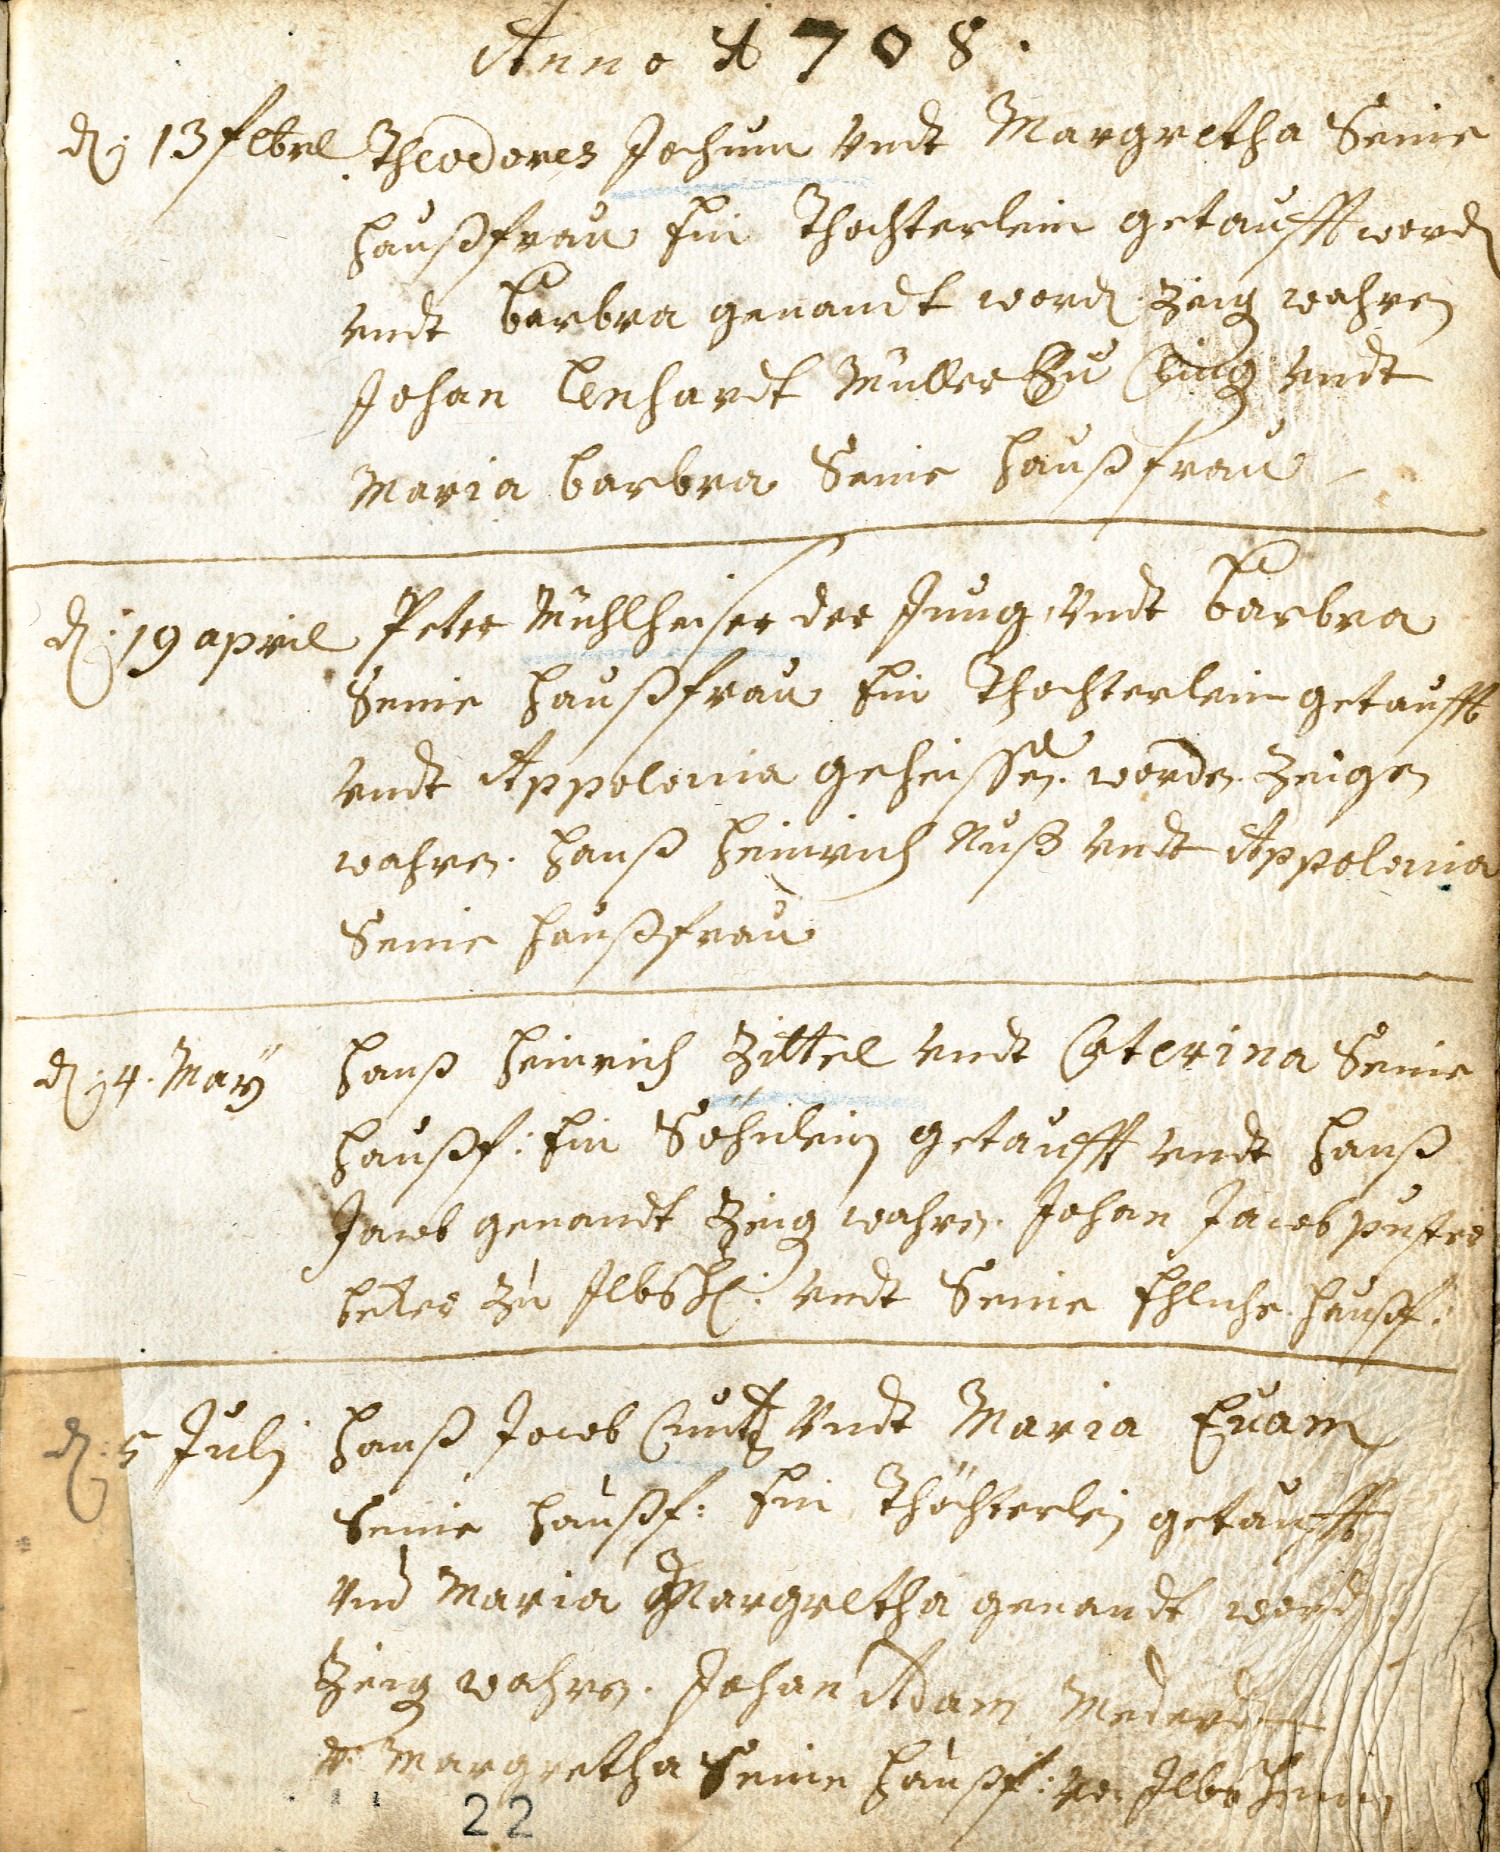 Anno 1708.
dj 13 febrl Theodores Jochum Vndt Margretha Seine
haußfrau Ein Thochterlein getaufft word
vndt barbra genandt word. Zeig wahren
Johan lenhardt Müller Zu Vndt
Maria barbra Seine haußfrau
dj 19 april Peter Mühlheiser der Jung Vndt barbra
Seine haußfrau Ein Thochterlein getaufft
vndt Appolonia geheissen. worden. Zeigen
wahren. hanß Heinrich Nuß Vndt Appolonia
Seine haußfrau
dj 4. Maÿ hanß Heinrich Zittel vndt Caterina Seine
haußf: Ein Söhnlein getaufft vndt hanß
Jacob genandt Zeig wahren. Johan Jacob
Zu Ilbsh: vndt Seine Ehliche haußf:
dj 5 Julj hanß Jacob Cuntz Vndt Maria Euam
Seine haußf: Ein Thöchterlein getaufft
vnd Maria Margretha genandt word.
Zeig wahren. Johan Adam
Margretha Seine haußf: Ilbsheim
22